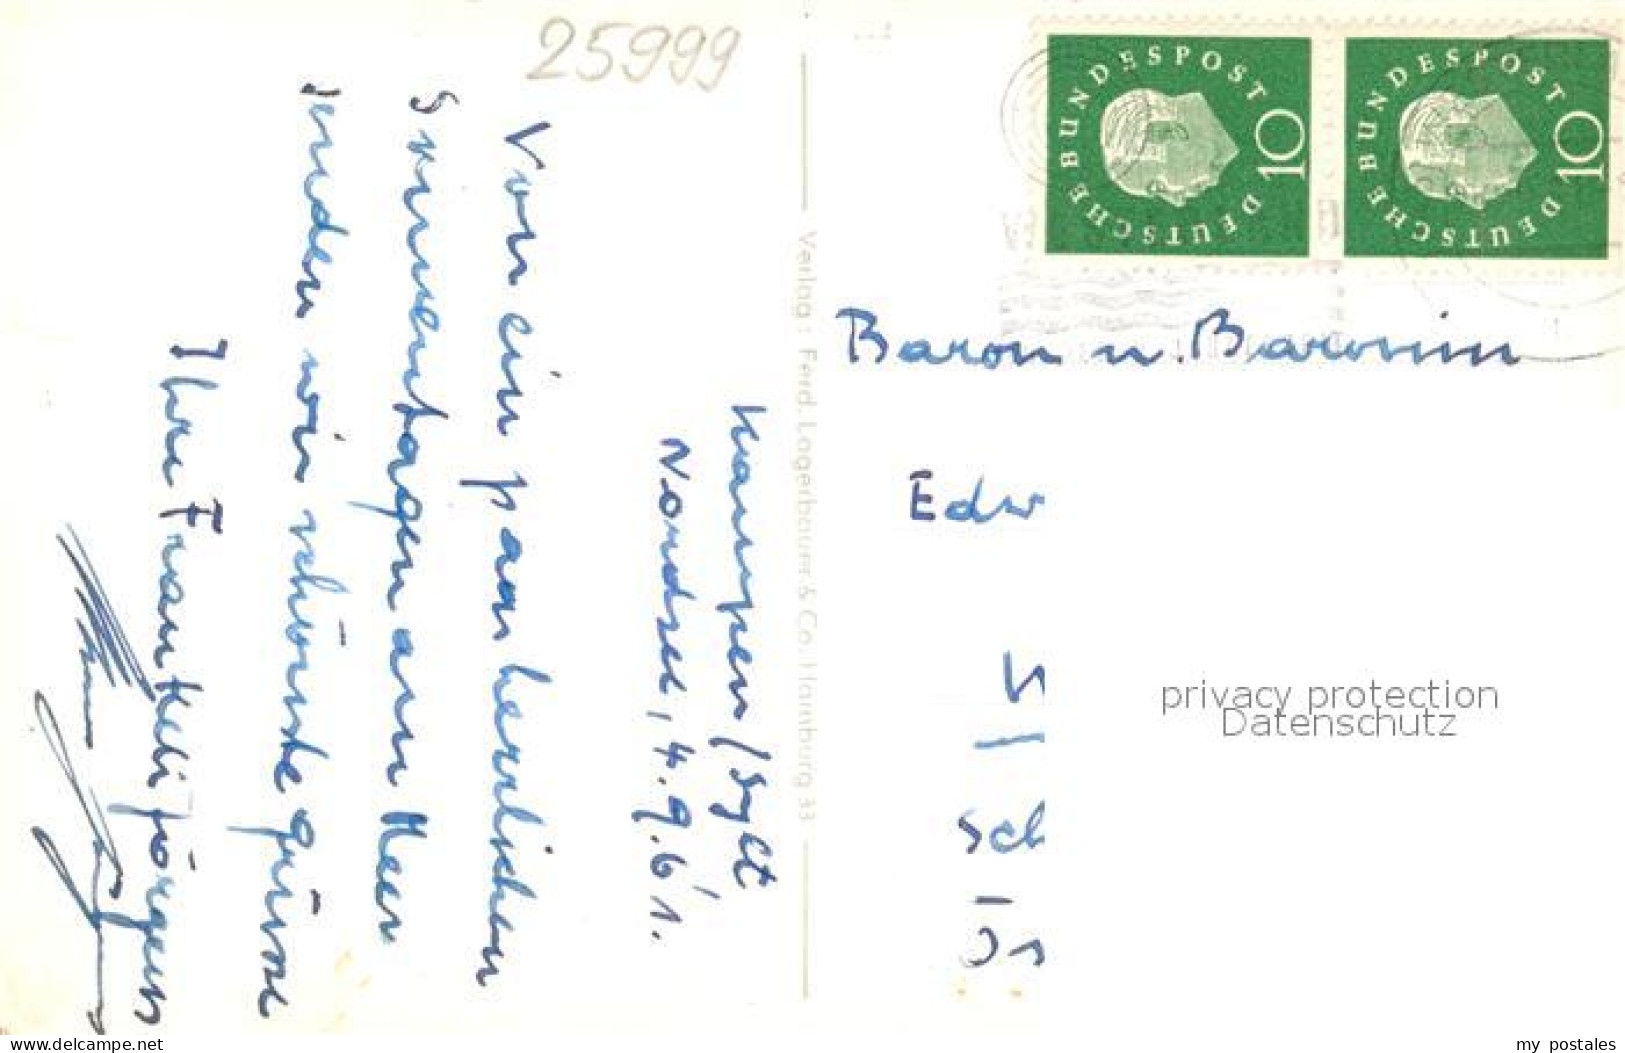 25999
Kampen/Sylt
Nordsee, 4.9.61.
Von ein paar herrlichen
Sonnentagen am Meer
senden wir schönste Grüsse
Ihre Frau Kelli Jörgens
Verlag: Ferd. Lagerbauer & Co. Hamburg 33
DEUTSCHE BUNDESPOST 10
DEUTSCHE BUNDESPOST 10
Baron u. Baronin
Edw
Sch
privacy protection
Datenschutz
www.delcampe.net
my_postales